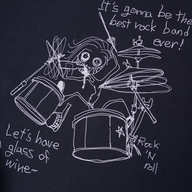 It's gonna be the
best rock band
ever!
Let's have
a glass of
wine~
Rock
'N
roll